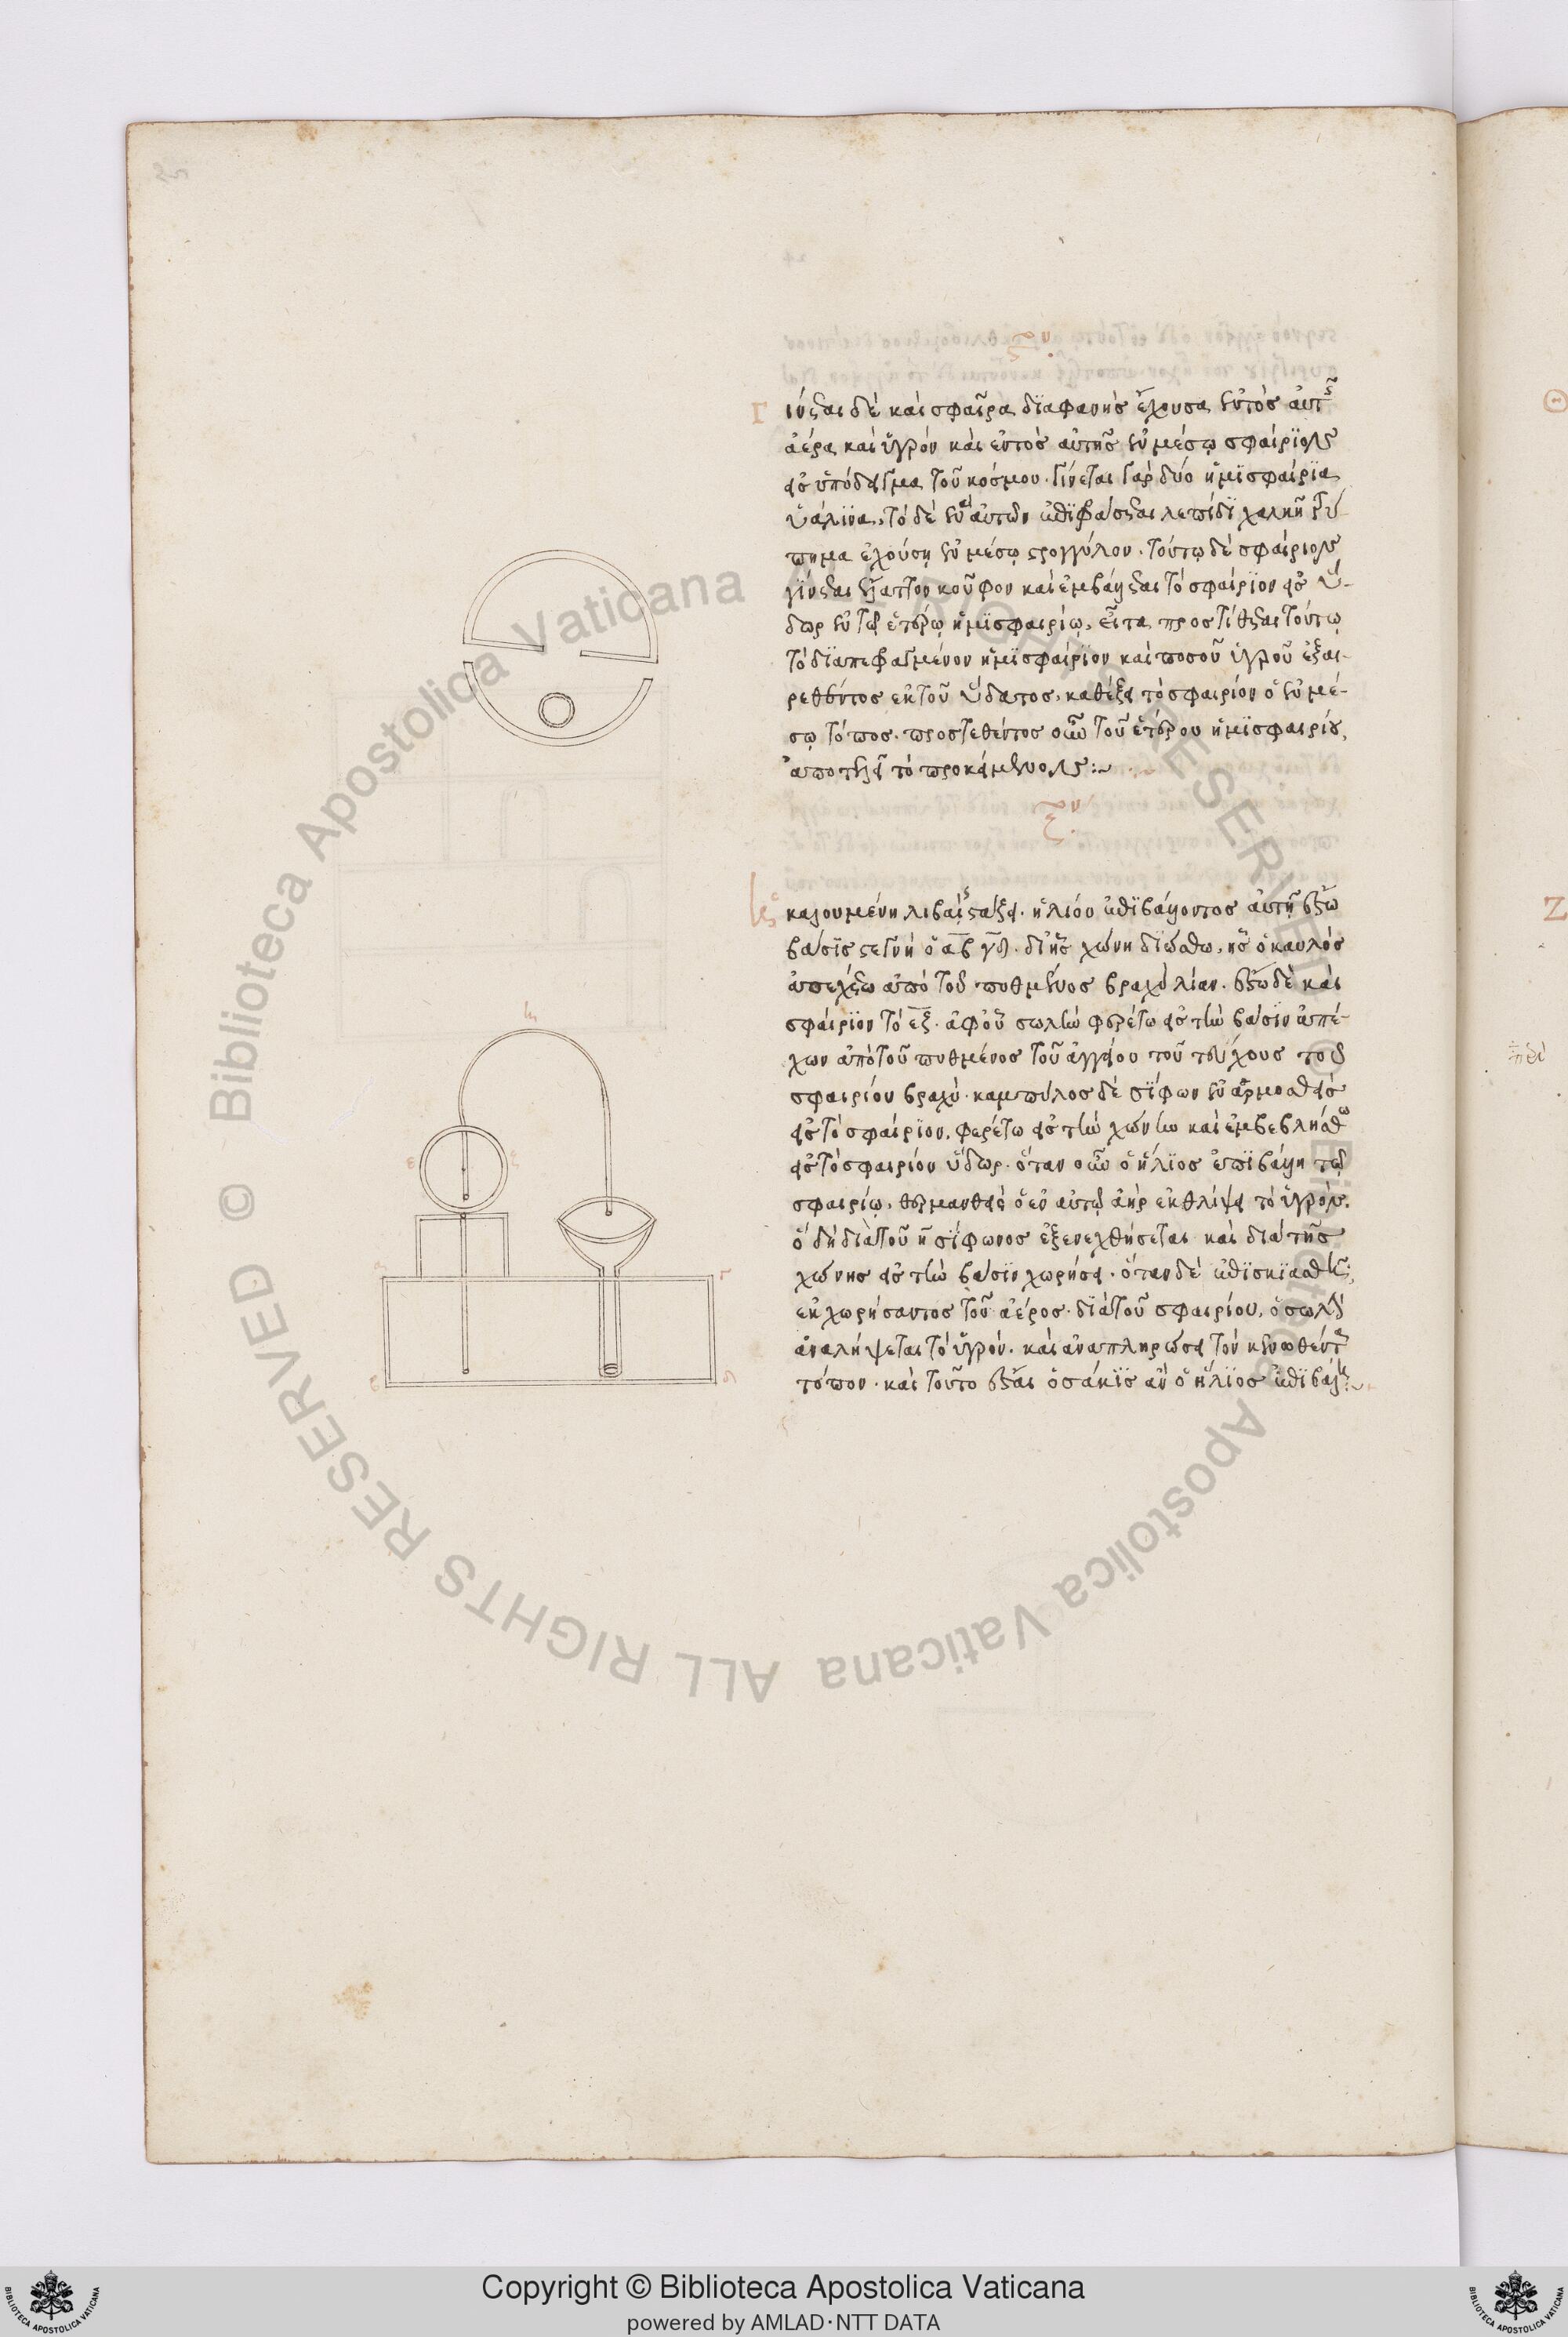 Γ ίνεσθαι δὲ καὶ σφαῖρα διαφανὴς ἔχουσα ἐντὸς αὐτῆς
ἀέρα καὶ ὑγρὸν καὶ ἐντὸς αὐτῆς ἐν μέσῳ σφαιρίον
εἰς ὑπόδειγμα τοῦ κόσμου. γίνεται γὰρ δύο ἡμισφαίρια
ὑάλινα, τὸ δὲ ἓν αὐτῶν ἐπιφράσσεται λεπίδι χαλκῇ τρύ-
πημα ἐχούσῃ ἐν μέσῳ στρογγύλον. τούτῳ δὲ σφαιρίον
γίνεσθαι ἔλαττον κοῦφον καὶ ἐμβάλλεσθαι τὸ σφαιρίον εἰς ὕ-
δωρ ἐν τῷ ἑτέρῳ ἡμισφαιρίῳ, εἶτα προστίθεσθαι τούτῳ
τὸ διαπεφραγμένον ἡμισφαίριον καὶ ποσοῦ ὑγροῦ ἐξαι-
ρεθέντος ἐκ τοῦ ὕδατος, καθέξει τὸ σφαιρίον ὁ ἐν μέ-
σῳ τόπος. προστεθέντος οὖν τοῦ ἑτέρου ἡμισφαιρίου,
ἀποτελεῖ τὸ προκείμενον:~
καλουμένη λιβὰς στάξει. ἡλίου ἐπιβάλλοντος αὐτῇ ἔστω
βάσις στεγνὴ ὁ αβ γδ. δι' ἧς χώνη διώσθω, ἧς ὁ καυλὸς
ἀπεχέσθω ἀπὸ τοῦ πυθμένος βραχὺ λίαν. ἔστω δὲ καὶ
σφαιρίον τὸ εξ. ἀφ' οὗ σωλὴν φερέτω εἰς τὴν βάσιν ἀπέ-
χων ἀπὸ τοῦ πυθμένος τοῦ ἀγγείου τοῦ τεύχους τοῦ
σφαιρίου βραχύ. καμπύλος δὲ σίφων ἐναρμοσθεὶς
εἰς τὸ σφαιρίον, φερέτω εἰς τὴν χώνην καὶ ἐμβεβλήσθω
εἰς τὸ σφαιρίον ὕδωρ. ὅταν οὖν ὁ ἥλιος ἐπιβάλῃ τῷ
σφαιρίῳ, θερμανθεὶς ὁ ἐν αὐτῷ ἀὴρ ἐκθλίψει τὸ ὑγρόν.
ὃ δὴ διὰ τοῦ η σίφωνος ἐξενεχθήσεται καὶ διὰ τῆς
χώνης εἰς τὴν βάσιν χωρήσει. ὅταν δὲ ἐπισκιασθῇ,
ἐκχωρήσαντος τοῦ ἀέρος διὰ τοῦ σφαιρίου, ὁ σωλὴν
ἀναλήψεται τὸ ὑγρόν. καὶ ἀναπληρώσει τὸν κενωθέντα
τόπον. καὶ τοῦτο ἔσται ὁσάκις ἂν ὁ ἥλιος ἐπιβάλῃ:~
Copyright © Biblioteca Apostolica Vaticana
powered by AMLAD·NTT DATA